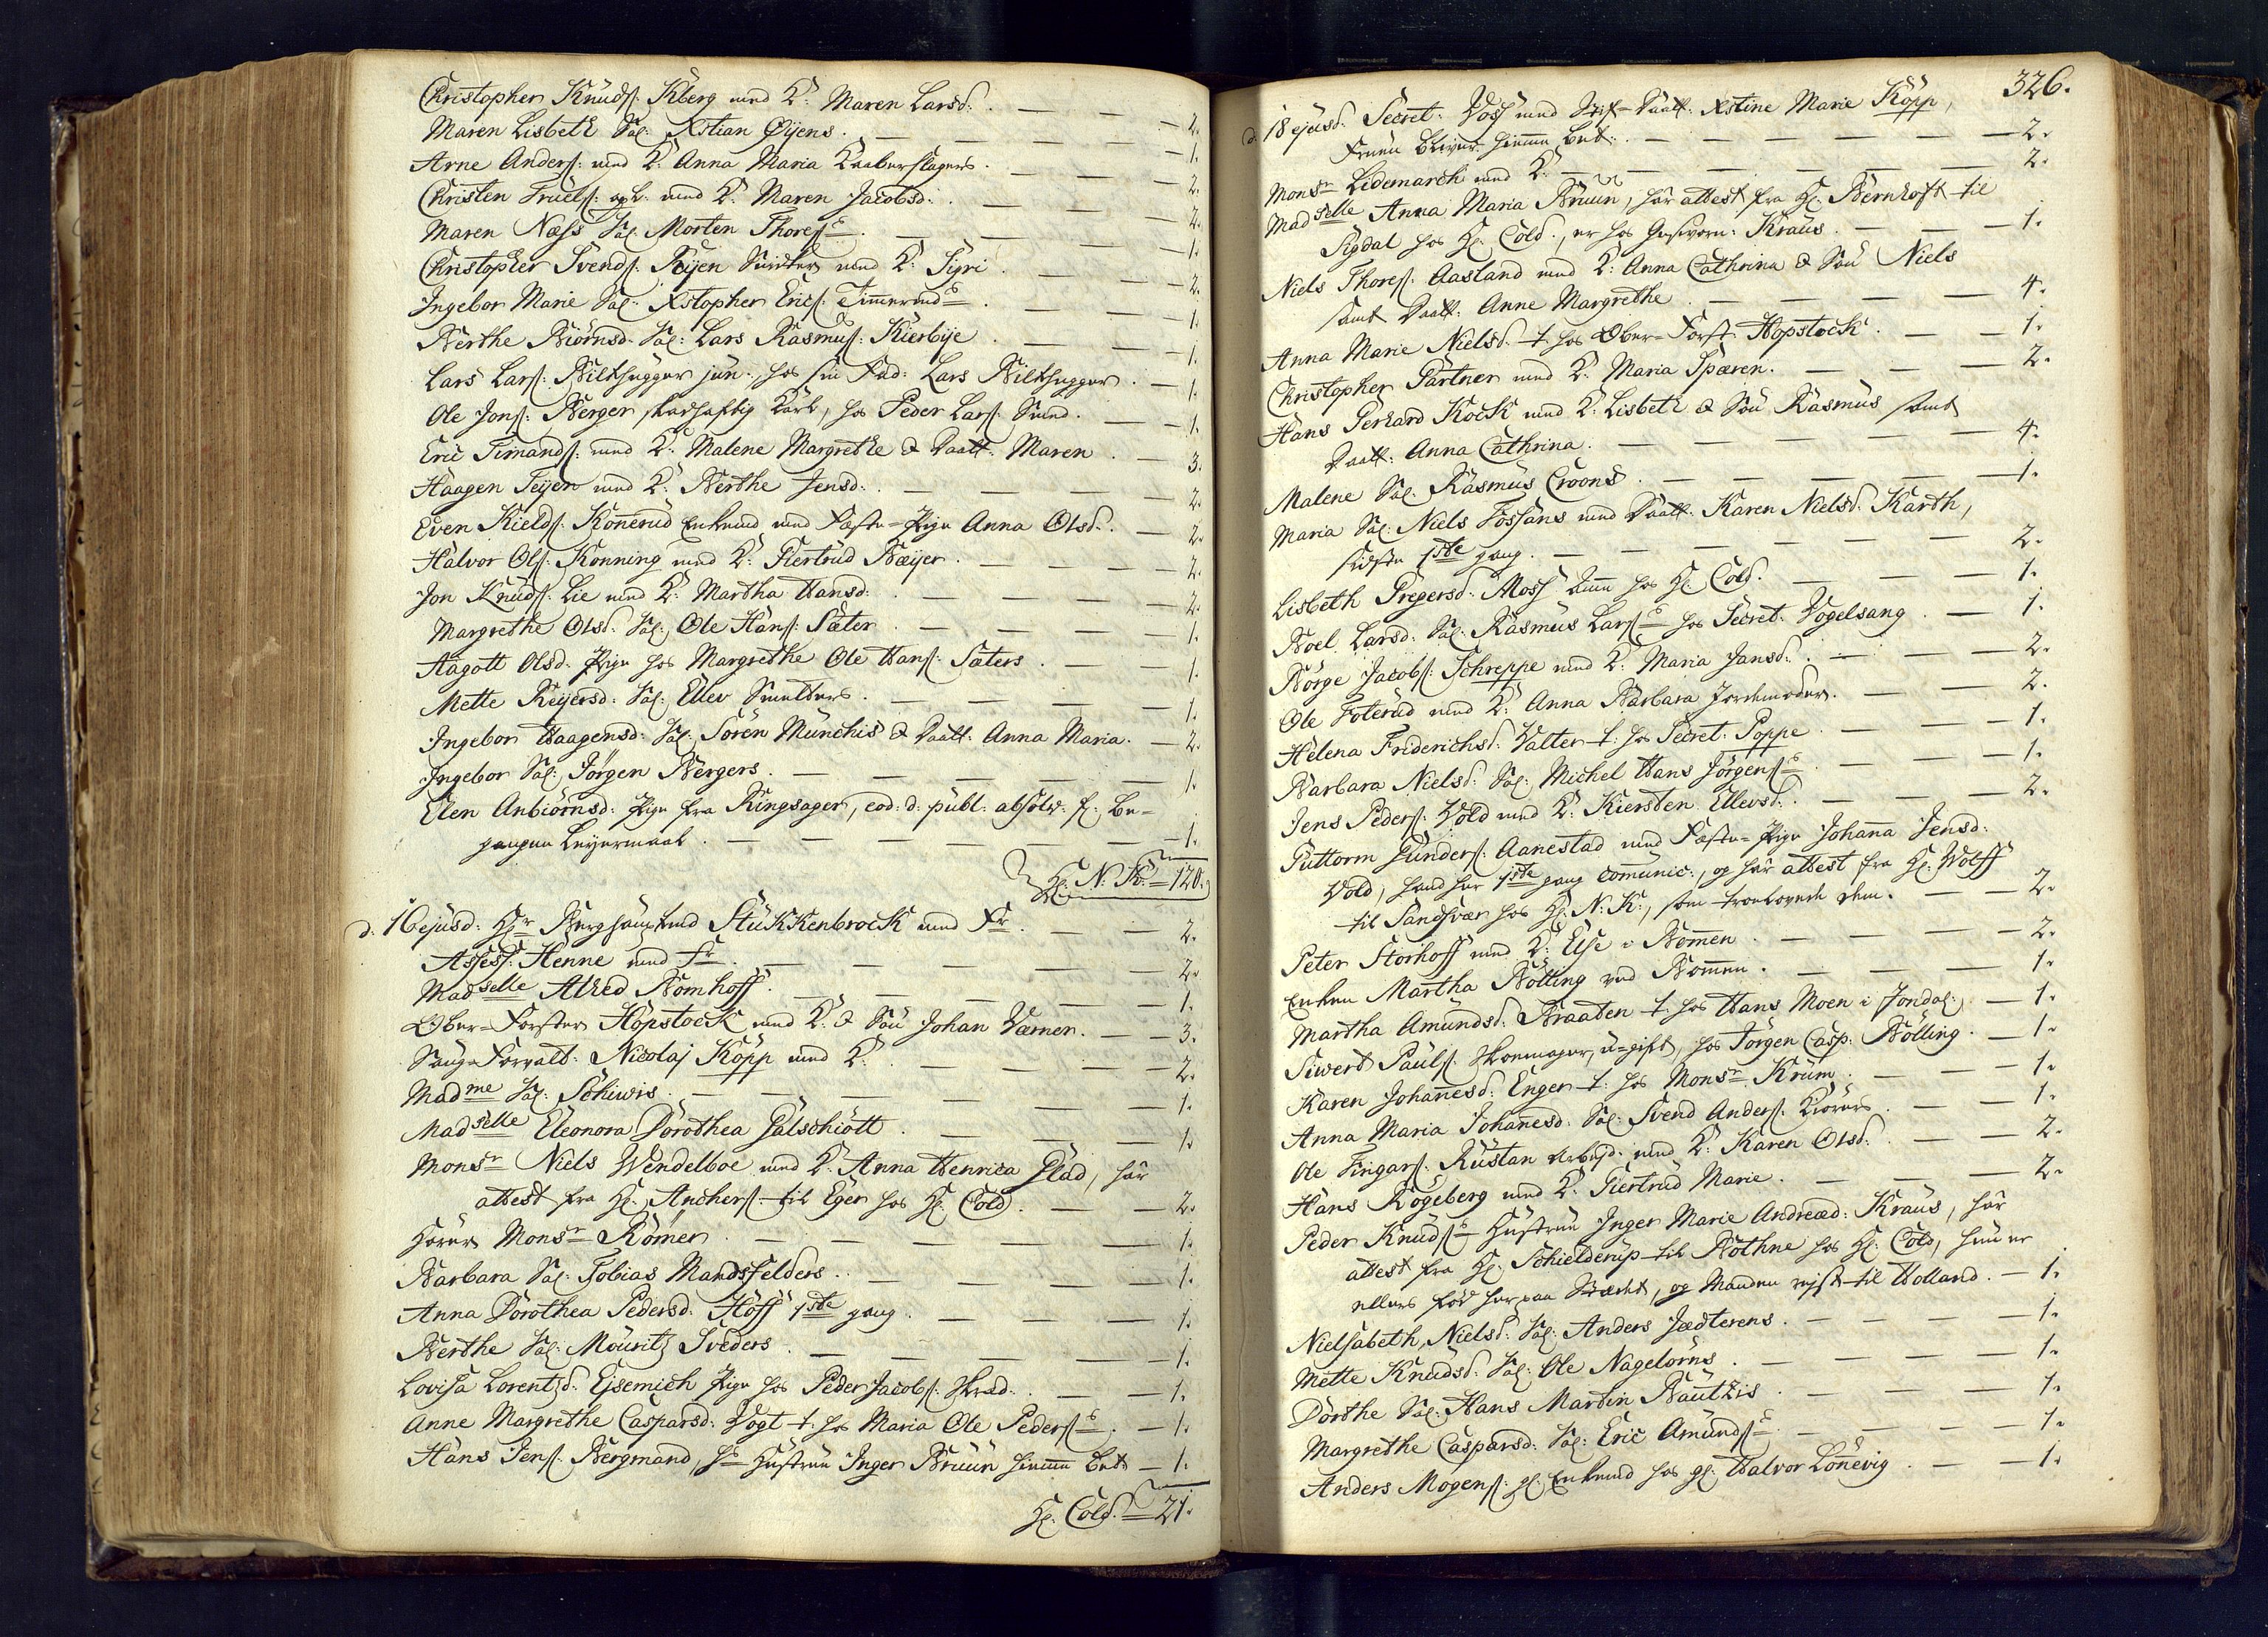 Christopher Knuds: Kberg med K: Maren Larsd: . — — 2.
Maren Lisbeth Sal: Xstian Øijens . — — — 1.
Arne Anders: med K: Anna Maria Kaaberslagers . — — 2.
Christen Truels: med K: Maren Jacobsd: . — — 2.
Maren Næss Sal: Morten Thores . — — — 1.
Christopher Svends: Reijen med K: Sigri . — — 2.
Ingebor Marie Sal: Xstopher Erics: Timmermds . — — 1.
Berthe Biörnsd: Sal: Lars Rasmus: Kierbije . — — 1.
Lars Lars: Bilthugger jun:, hos sin Fad: Lars Bilthugger . — 1.
Ole Jons: Berger skadhaftig Karl, hos Peder Lars: Smed . — — 1.
Eric Timands: med K: Malene Margrethe & Daatt: Maren . — 3.
Haagen Teijen med K: Berthe Jensd: . — — 2.
Even Kields: Konerud Enkemd med Fæste-Pige Anna Olsd: . — 2.
Halvor Ols: Konning med K: Giertrud Bæijer . — — 2.
Jon Knuds: Lie med K: Martha Hansd: . — — 2.
Margrethe Olsd: Sal: Ole Hans: Sæter . — — 1.
Aagott Olsd: Pige hos Margrethe Ole Hans: Sæters . — 1.
Mette Reijersd: Sal: Ellev Smelters . — — 1.
Ingebor Haagensd: Sal: Sören Münchis & Daatt: Anna Maria . — 2.
Ingebor Sal: Jörgen Bergers . — — — 1.
Elen Anbiörnsd: Pige fra Ringsager, eod: d: publ: absolv: f: be-
gangen Leijermaal . — — — 1.
Hr: N: K: = 120.
d: 16 ejusd: Hr Berghauptmd Stukkenbrock med Fr . — — 2.
Assess: Henne med Fr . — — — 2.
Madselle Alhed Bomhoff . — — — 1.
Ober-Forster Hopstock med K: & Søn Johan Værner . — 3.
Saug-Forvalt: Nicolaj Köpp med K: . — — 2.
Madme Sal: Schiwis . — — — 1.
Madselle Eleonora Dorothea Galschiött . — — 1.
Monsr Niels Wendelboe med K: Anna Henrica Glad, har
attest fra Hr: Anchers: til Eger hos Hr: Cold . — — 2.
Hörer Monsr Römer . — — — 1.
Barbara Sal: Tobias Mandsfelders . — — 1.
Anna Dorothea Pedersd: Höff 1ste gang . — — 1.
Berthe Sal: Mouritz Sveders . — — 1.
Lovisa Lorentzd: Ejsemich Pige hos Peder Jacobs: Skræd: . — — 1.
Anne Margrethe Caspersd: Vogt t: hos Maria Ole Peders . — 1.
Hans Jens: Bergmand, hs Hustrue Inger Bruun hiemme bet: — 1.
Hr: Cold. = 21.
326.
d: 18 ejusd: Secret: Voss med Stif-Daatt: Xstine Marie Köpp,
Fruen bliver hiemme bet: . — — — 2.
Monsr Lidemarck med K: — — — 2.
Madselle Anna Maria Bruun, har attest fra Hr: Bernhoft til
Sigdal hos Hr: Cold, er hos Geschworn: Kraus . — — 1.
Niels Thores: Aasland med K: Anna Cathrina & Søn Niels
samt Daatt: Anne Margrethe . — — — 4.
Anna Marie Nielsd: t: hos Ober-Forst: Hopstock . — — 1.
Christopher Gärtner med K: Maria Spæren . — — 2.
Hans Gerhard Kock med K: Lisbeth & Søn Rasmus samt
Daatt: Anna Cathrina . — — — 4.
Malene Sal: Rasmus Croons . — — — 1.
Maria Sal: Niels Fossans med Daatt: Karen Nielsd: Karth,
sidste 1ste gang . — — — 2.
Lisbeth Gregersd: Moss hos Hr: Cold . — — 1.
Boel Larsd: Sal: Rasmus Lars hos Secret: Vogelsang . — 1.
Börge Jacobs: Schreppe med K: Maria Jansd: . — — 2.
Ole Foterud med K: Anna Barbara Jordemoder . — 2.
Helena Friderichsd: Valter t: hos Secret: Poppe . — — 1.
Barbara Nielsd: Sal: Michel Hans Jörgens . — — 1.
Jens Peders: Vold med K: Kiersten Ellevsd: . — — 2.
Guttorm Gunders: Aanestad med Fæste-Pige Johanna Jensd:
Vold, hand har 1ste gang communic:, og har attest fra Hr: Wolff
til Sandsvær hos Hr: N: K:, som trolovede dem . — — 2.
Peter Storhoff med K: Else i Bommen . — — 2.
Enken Martha Bölling ved Bommen . — — 1.
Martha Amundsd: Braaten t: hos Hans Moen i Jondal: — 1.
Siwert Pauls: Skomager, u-gift, hos Jörgen Casp: Bölling . — 1.
Karen Johannesd: Enger t: hos Monsr Krum . — — 1.
Anna Maria Johannesd: Sal: Svend Anders: Kiörers . — — 1.
Ole Fingars: Rustan Arbejd: med K: Karen Olsd: . — — 2.
Hans Bogeberg med K: Giertrud Marie . — — 2.
Peder Knuds Hustrue Inger Marie Andreæd: Kraus, har
attest fra Hr: Schielderup til Bothne hos Hr: Cold, hun er
ellers föd her paa Stædet, og Manden rejst til Holland . — 1.
Nielsabeth Nielsd: Sal: Anders Jædterens . — — 1.
Mette Knudsd: Sal: Ole Nagelörns . — — 1.
Dorthe Sal: Hans Martin Bautzis . — — 1.
Margrethe Caspersd: Sal: Eric Amunds . — — 1.
Anders Mogens: gl: Enkemd hos gl: Halvor Lönevig . — — 1.